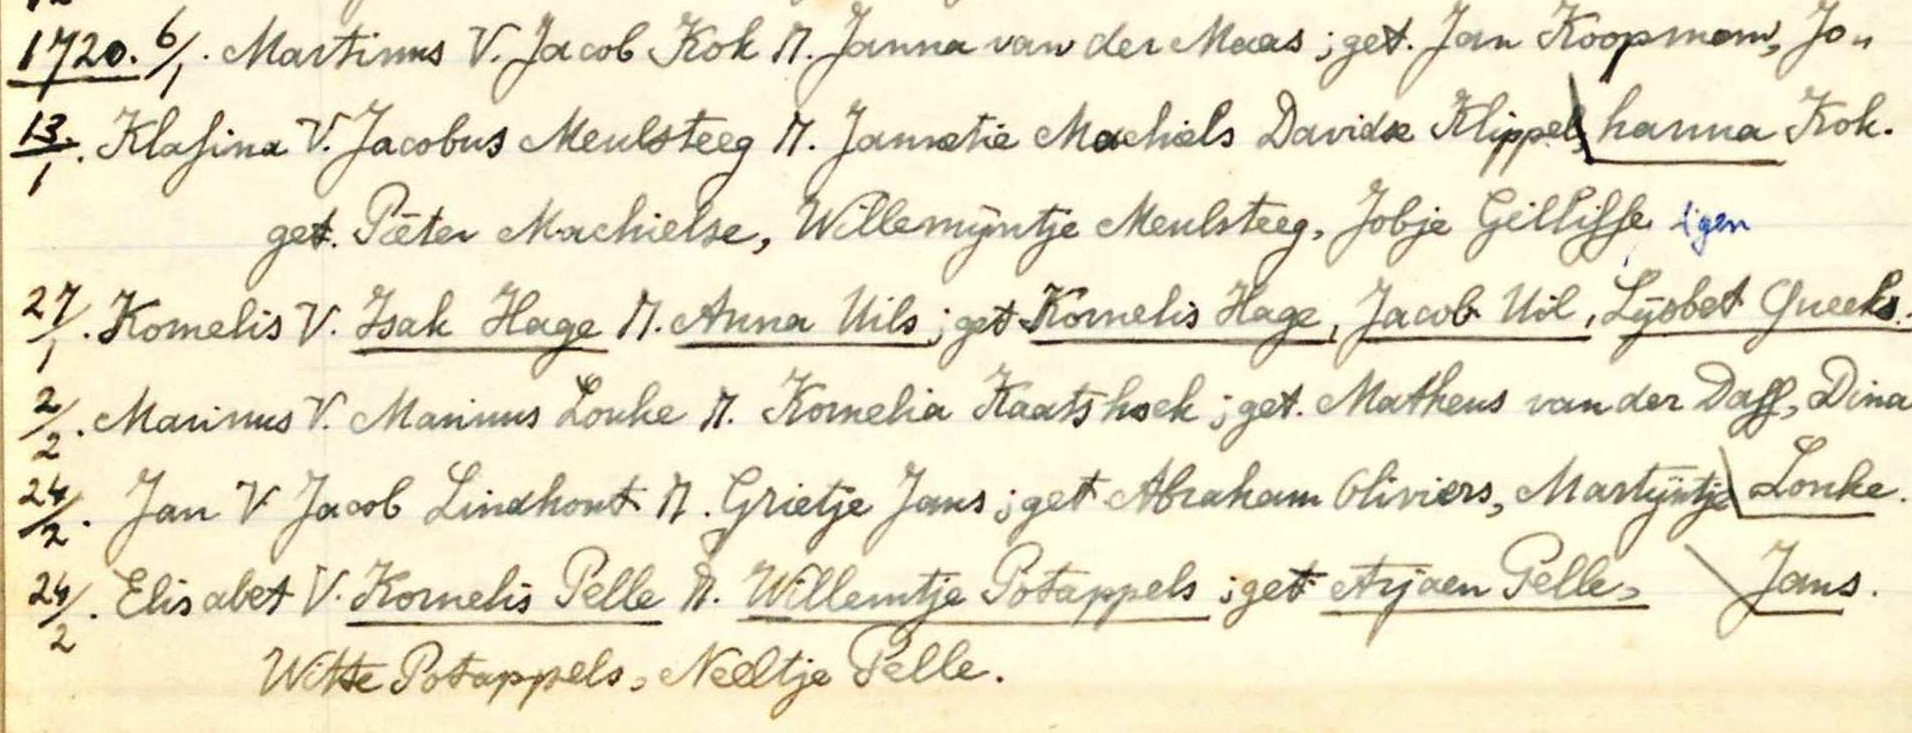 1720. 6/1. Martinus V. Jacob Kok M. Janna van der Maas ; get. Jan Koopman, Jo„
13/1. Klasina V. Jacobus Meulsteeg M. Jannetie Machiels Davidse Klippel, hanna Kok.
get. Pieter Machielse, Willemijntje Meulsteeg, Jobje Gillisse
27/1. Kornelis V. Isak Hage M. Anna Uils ; get Kornelis Hage, Jacob Uil, Lijsbet Queeks.
2/2. Marinus V. Marinus Lonke M. Kornelia Kaatshoek ; get. Matheus van der Daff, Dina
24/2. Jan V Jacob Lindhout M. Grietje Jans ; get Abraham Oliviers, Martijntje Lonke.
24/2. Elisabet V. Kornelis Pelle M. Willemtje Potappels ; get Arjaen Pelle, Jans.
Witte Potappels, Neeltje Pelle.